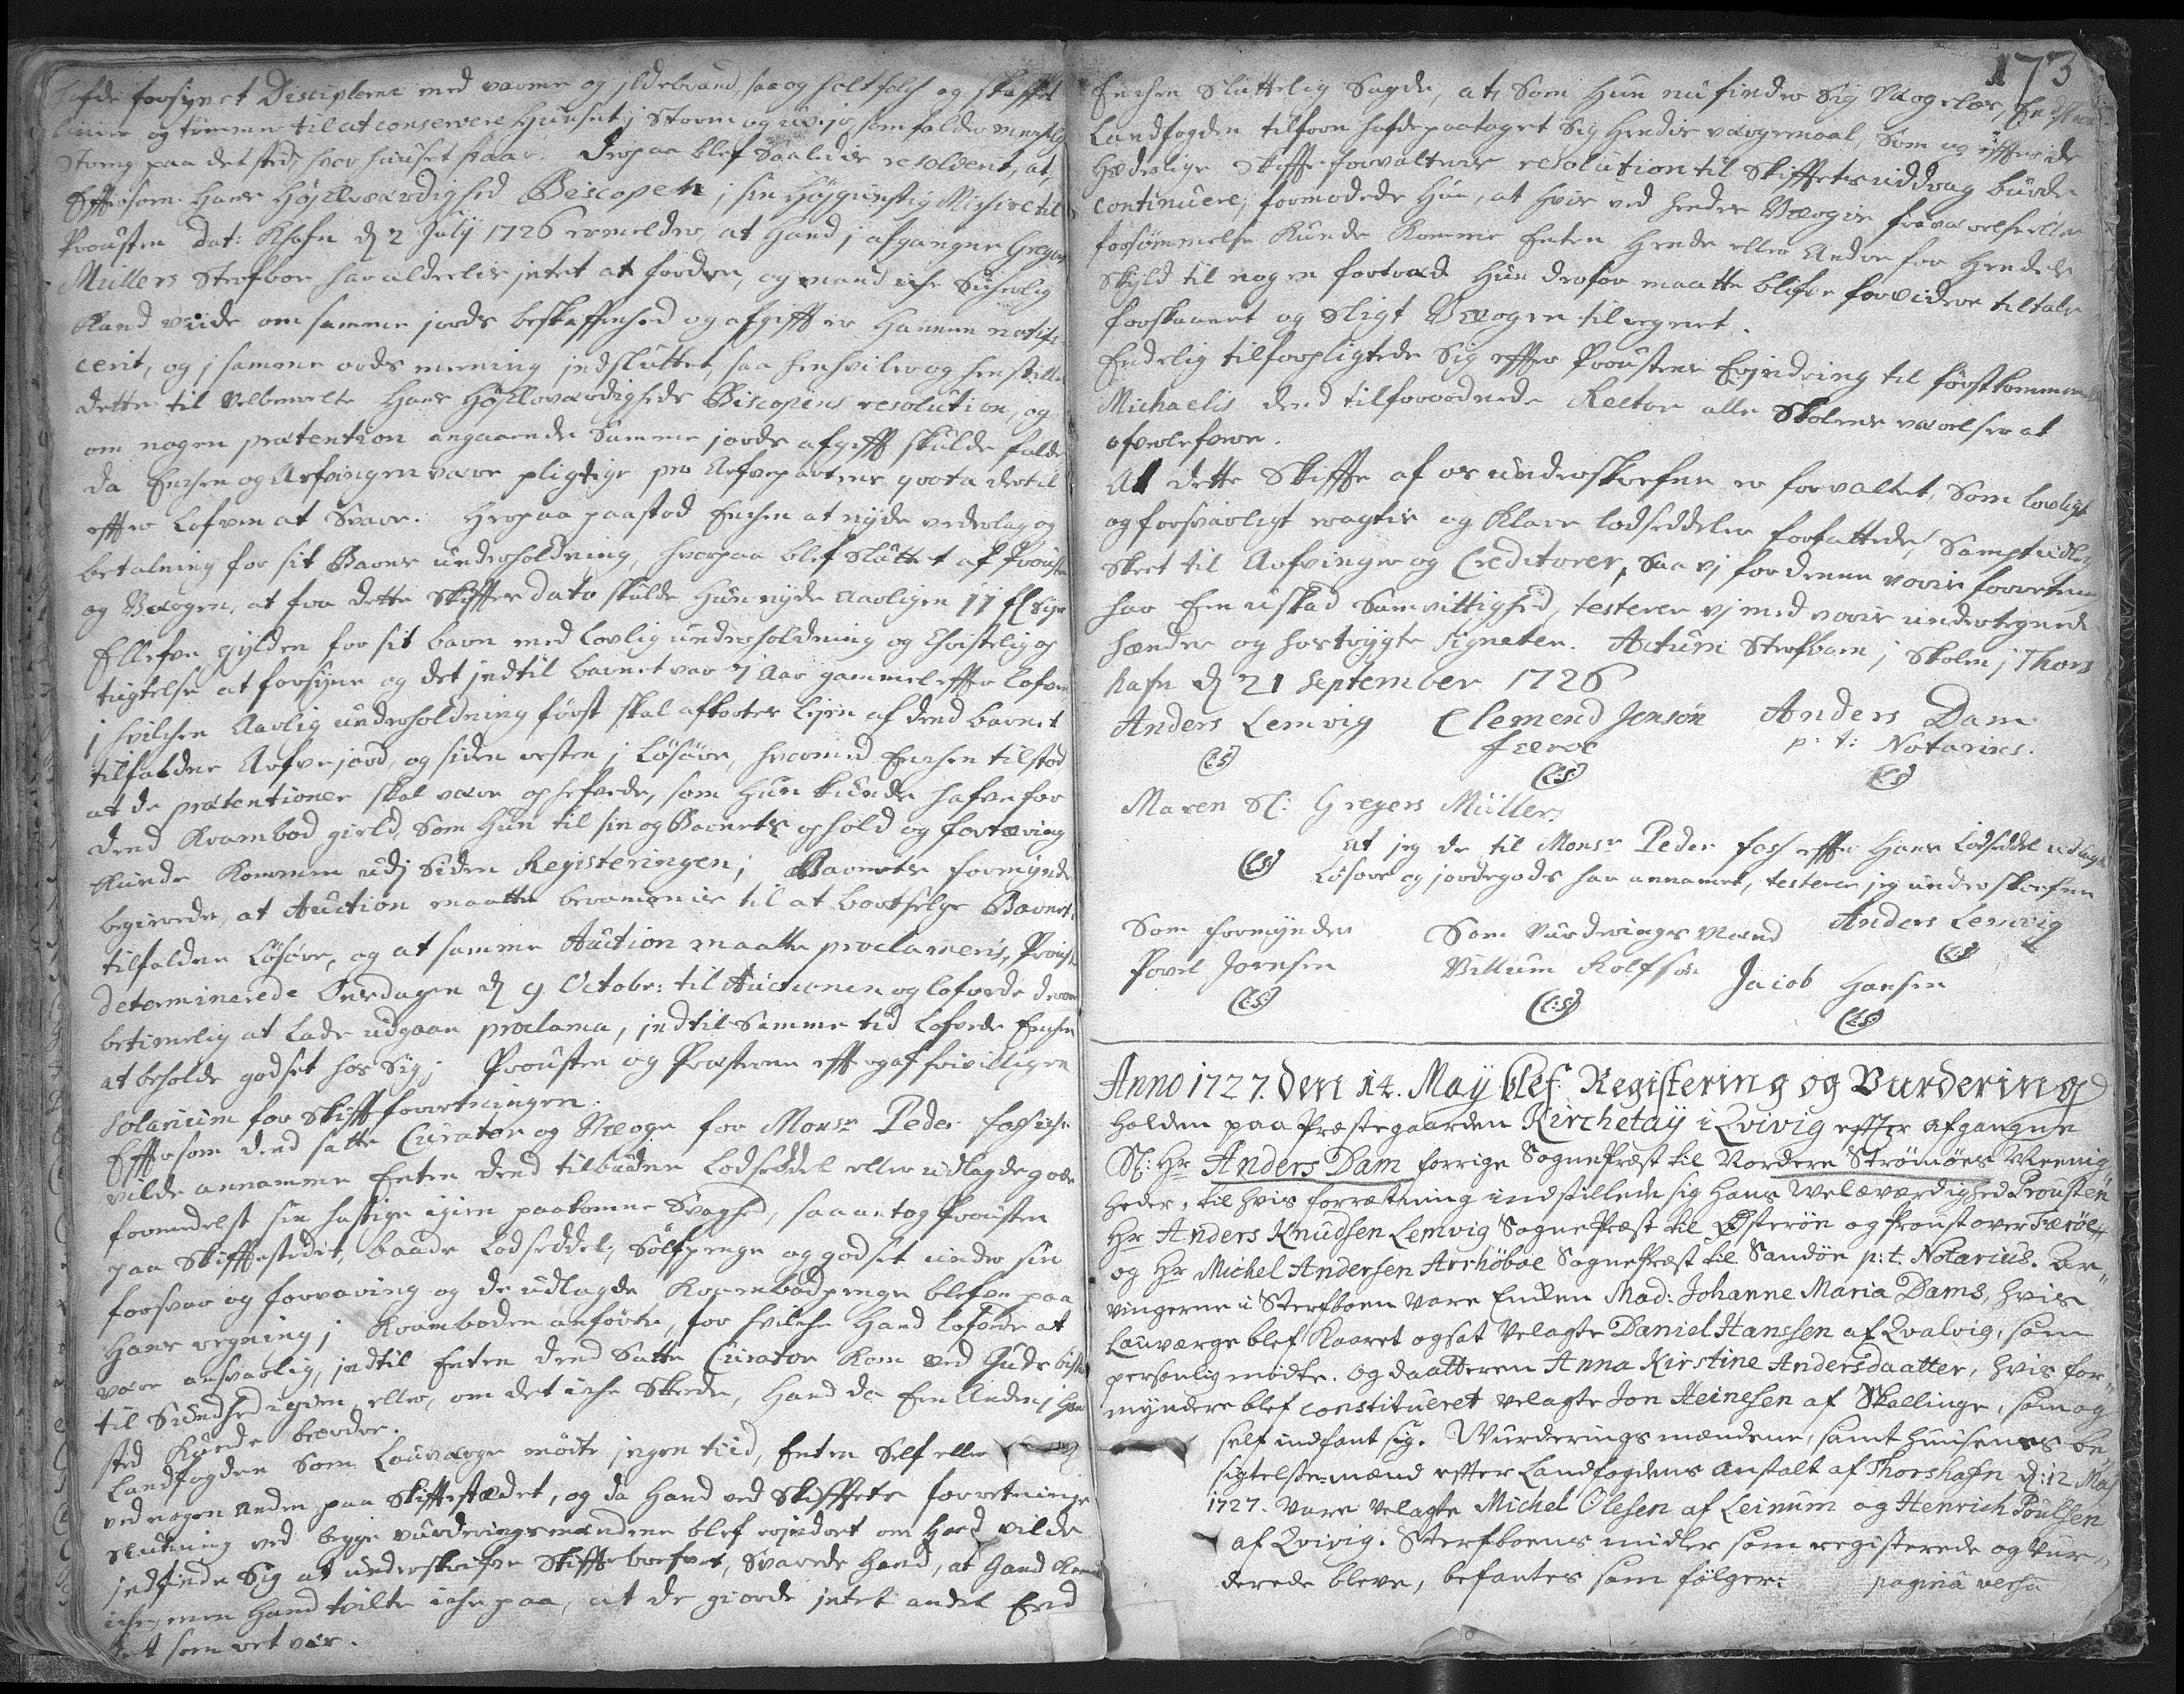 forsynet Disciplene med varme og Ildebrand, saa og holt folch og skaffet
og tømmer til at conservere Huuset i Storm og uvejr, som falder
streng paa det sted, hvor huuset staar. Derpaa blef Saaledis resolverit, at,
Efftersom Hans Højærværdighed Biscopen j sin Højgunstig Missive til
Prousten dat: Khafn d 2 Julij 1726 ermelder, at Hand j afgangne Gregers
Müllers Sterfboe har alderlis intet at fordre, og mand iche Sicherlig
Kand vide om samme jords beskaffenhed og afgifft er Hannem notifi-
cerit, og j samme ords meening indsluttet, saa henhviler og henstilles
dette til Velbemelte Hans Højærværdigheds Biscopens resolution, og
om nogen prætention angaaende Samme jords afgifft skulde falde
da Enchen og Arfvingen være pligtige pro Arfvepartens qvota dertil
effter Lofven at Svare. Herpaa paastod Enchen at nyde vederlag og
betaling for sit Barns underholdning, hvorpaa blef Sluttet af Prousten
og Værgen, at fra dette Skifftes dato skulde Hun nyde Aarligen 11 fl siger
Ellefve gylden for sit barn med Lovlig underholdning og Christelig op
tugtelse at forsyne og det indtil barnet var 7 Aar gammel effter Lofven
j hvilchen Aarlig underholdning først skal afkortes Lejen af dend barnet
tilfaldne Arfvejord, og siden resten j Løsøre, hvormed Enchen tilstod
at de prætentioner skal være ophefvede, som Hun kunde hafve for
dend Krambod gield, Som Hun til sin og Barnets ophold og fortæring
kunde Kommen udj siden Registeringen; Barnets formynder
begierede, at Auction maatte berammes til at bortselge Barnets
tilfaldne Løsøre, og at samme Auction maatte proclameris, Prousten
determinerede Onsdagen d 9 Octobr: til Auctionen og lofvede derom
betimelig at Lade udgaae proclama, indtil Samme tid Lofvede Enchen
at beholde godset hos Sig; Prousten og Præsterne effter gaf frivilligen
Solarium for Skiffteforretningen.
Efftersom dend satte Curator og Værge for Monsr Peder Foss iche
vilde annamme Enten dend tilbudne Lodseddel eller udlagde gods
formedelst sin hastige igien paakomne Svaghed, saa antog Prousten
paa Skifftestedit, baade Lodseddel, Sølfpenge og godset under sin
forsvar og forvaring og de udlagde Krambodpenge blefve paa
Hans regning j Kramboden anførte, for hvilche Hand lofvede at
være ansvarlig, indtil Enten dend Satte Curator kom ved Guds bistand
til Sundhed igien eller, om det iche Skede, Hand da Een Anden j Hans
sted kunde beordre.
Landfogden Som Lauværge mødte ingen tiid, Enten Self eller
ved nogen anden paa Skifftestædet, og da Hand ved Skifftets forretnings
slutning ved begge vurderingsmændene blef erindret om Hand vilde
indfinde Sig at underskrifve Skifftebrefvet, Svarede Hand, at Hand Kand
iche, men Hand tvilte iche paa, at de giorde intet andet End
det som ret var.
173
Enchen Sluttelig Sagde, at Som Hun nu finder Sig Værgeløs,
Landfogden tilforn hafde paataget Sig Hendis værgemaal, Som og effter de
Hæderlige Skiffteforvalteres resolution til Skifftets uddrag burde
continuere, formodede Hun, at hvis ved hendes Værges fraværelse eller
forsømmelse kunde Komme Enten Hende eller Andre for Hendes
Skyld til nogen fortræd Hun derfor maatte blifve for videre tiltale
forskaanet og Sligt Værgen tilregnet.
Endelig tilforpligtede Sig effter Proustens Erindring til førstkommende
Michaelis dend tilforordnede Rector alle Skolens værelser at
ofverlefvere.
At dette Skiffte af os underskrefne er forvaltet, Som lovligt
og forsvarligt ragtes og Klare lodseddeler forfattede, Sampt udlæg
Skeet til Arfvinger og Creditorer, Saa vj for denne voris forretning
har Een uskad Samvittighed, testerer vj med voris undertegnede
hænder og hostrygte Signeter. Actum Sterfboen j Skolen j Thors
hafn d 21 September 1726
Anders Lemvig Clemend Jensøn Anders Dam
Færøe p: t: Notarius.
(LS) (LS) (LS)
Maren Sl: Gregers Müllers
At jeg de til Monsr Peder Foss effter Hans Lodseddel udlagte
(LS) Løsøre og jordegods har annamet, testerer jeg underskrefne
Som formynder Som Vurderings Mænd Anders Lemvig
(LS)
Povel Joensen Villum Rolfsøn Jacob Hansen
(LS) (LS) (LS)
Anno 1727. den 14. Maÿ blef Registering og Vurdering
holden paa Præstegaarden Kirchetaÿ i Qvivig effter afgangne
Sl: Hr Anders Dam forrige SognePræst til Nordere Strømøes Meenig-
heder, til hvis forrætning indstillede sig Hans Welærværdighed Prousten
Hr Anders Knudsen Lemvig SognePræst til Østerøn og Proust over Færøe,
og Hr Michel Andersen Arrhöboe SognePræst til Sandøe p: t. Notarius. Ar-
vingerne i Sterfboen vare Enken Mad: Johanne Maria Dams, hvis
Lauværge blef Kaaret og sat Velagte Daniel Hanssen af Qvalvig, som
personlig mødte. og daatteren Anna Kirstine Andersdaatter, hvis for-
myndere blef constitueret velagte Jon Heinesen af Skællinge, som og
self indfant sig. Wurderings mændene, samt huusenes be
sigtelsesmænd effter Landfogdens anstalt af Thorshafn d: 12 Maj
1727. vare velagte Michel Olesen af Leinum og Henrich Poulsen
af Qvivig. Sterfboens midler som registerede og vur-
derede bleve, befantes som følger: pagina versa